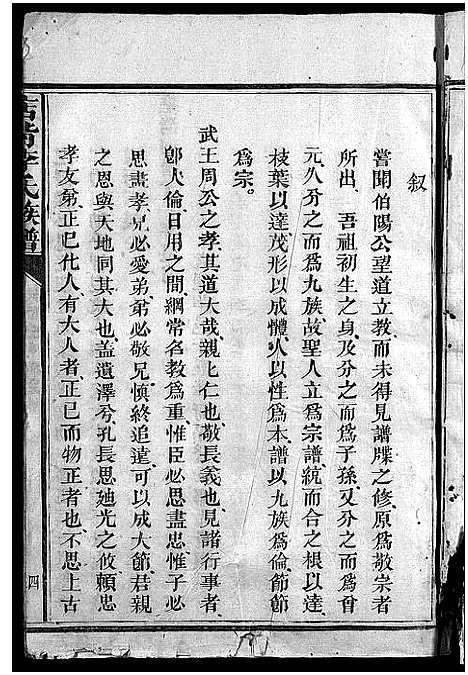 叙
嘗聞伯陽公望道立教而未得見譜牒之修原爲敬宗者
所出吾祖初生之身及分之而爲子孫又分之而爲曾
元久分之而爲九族故聖人立爲宗譜統而合之根以達
枝葉以達茂形以成體人以性爲本譜以九族爲倫節節
爲宗
武王周公之孝其道大哉親上仁也敬長義也見諸行事者
郎人倫日用之間綱常名教爲重惟臣必思盡忠惟子必
思盡孝兄必愛弟弟必敬兄慎終追遠可以成大節君親
之恩與天地同其大也蓋遺澤兮孔長思廸光之攸賴忠
孝友弟正己化人有大人者正己而物正者也不思上古
氏族譜
四